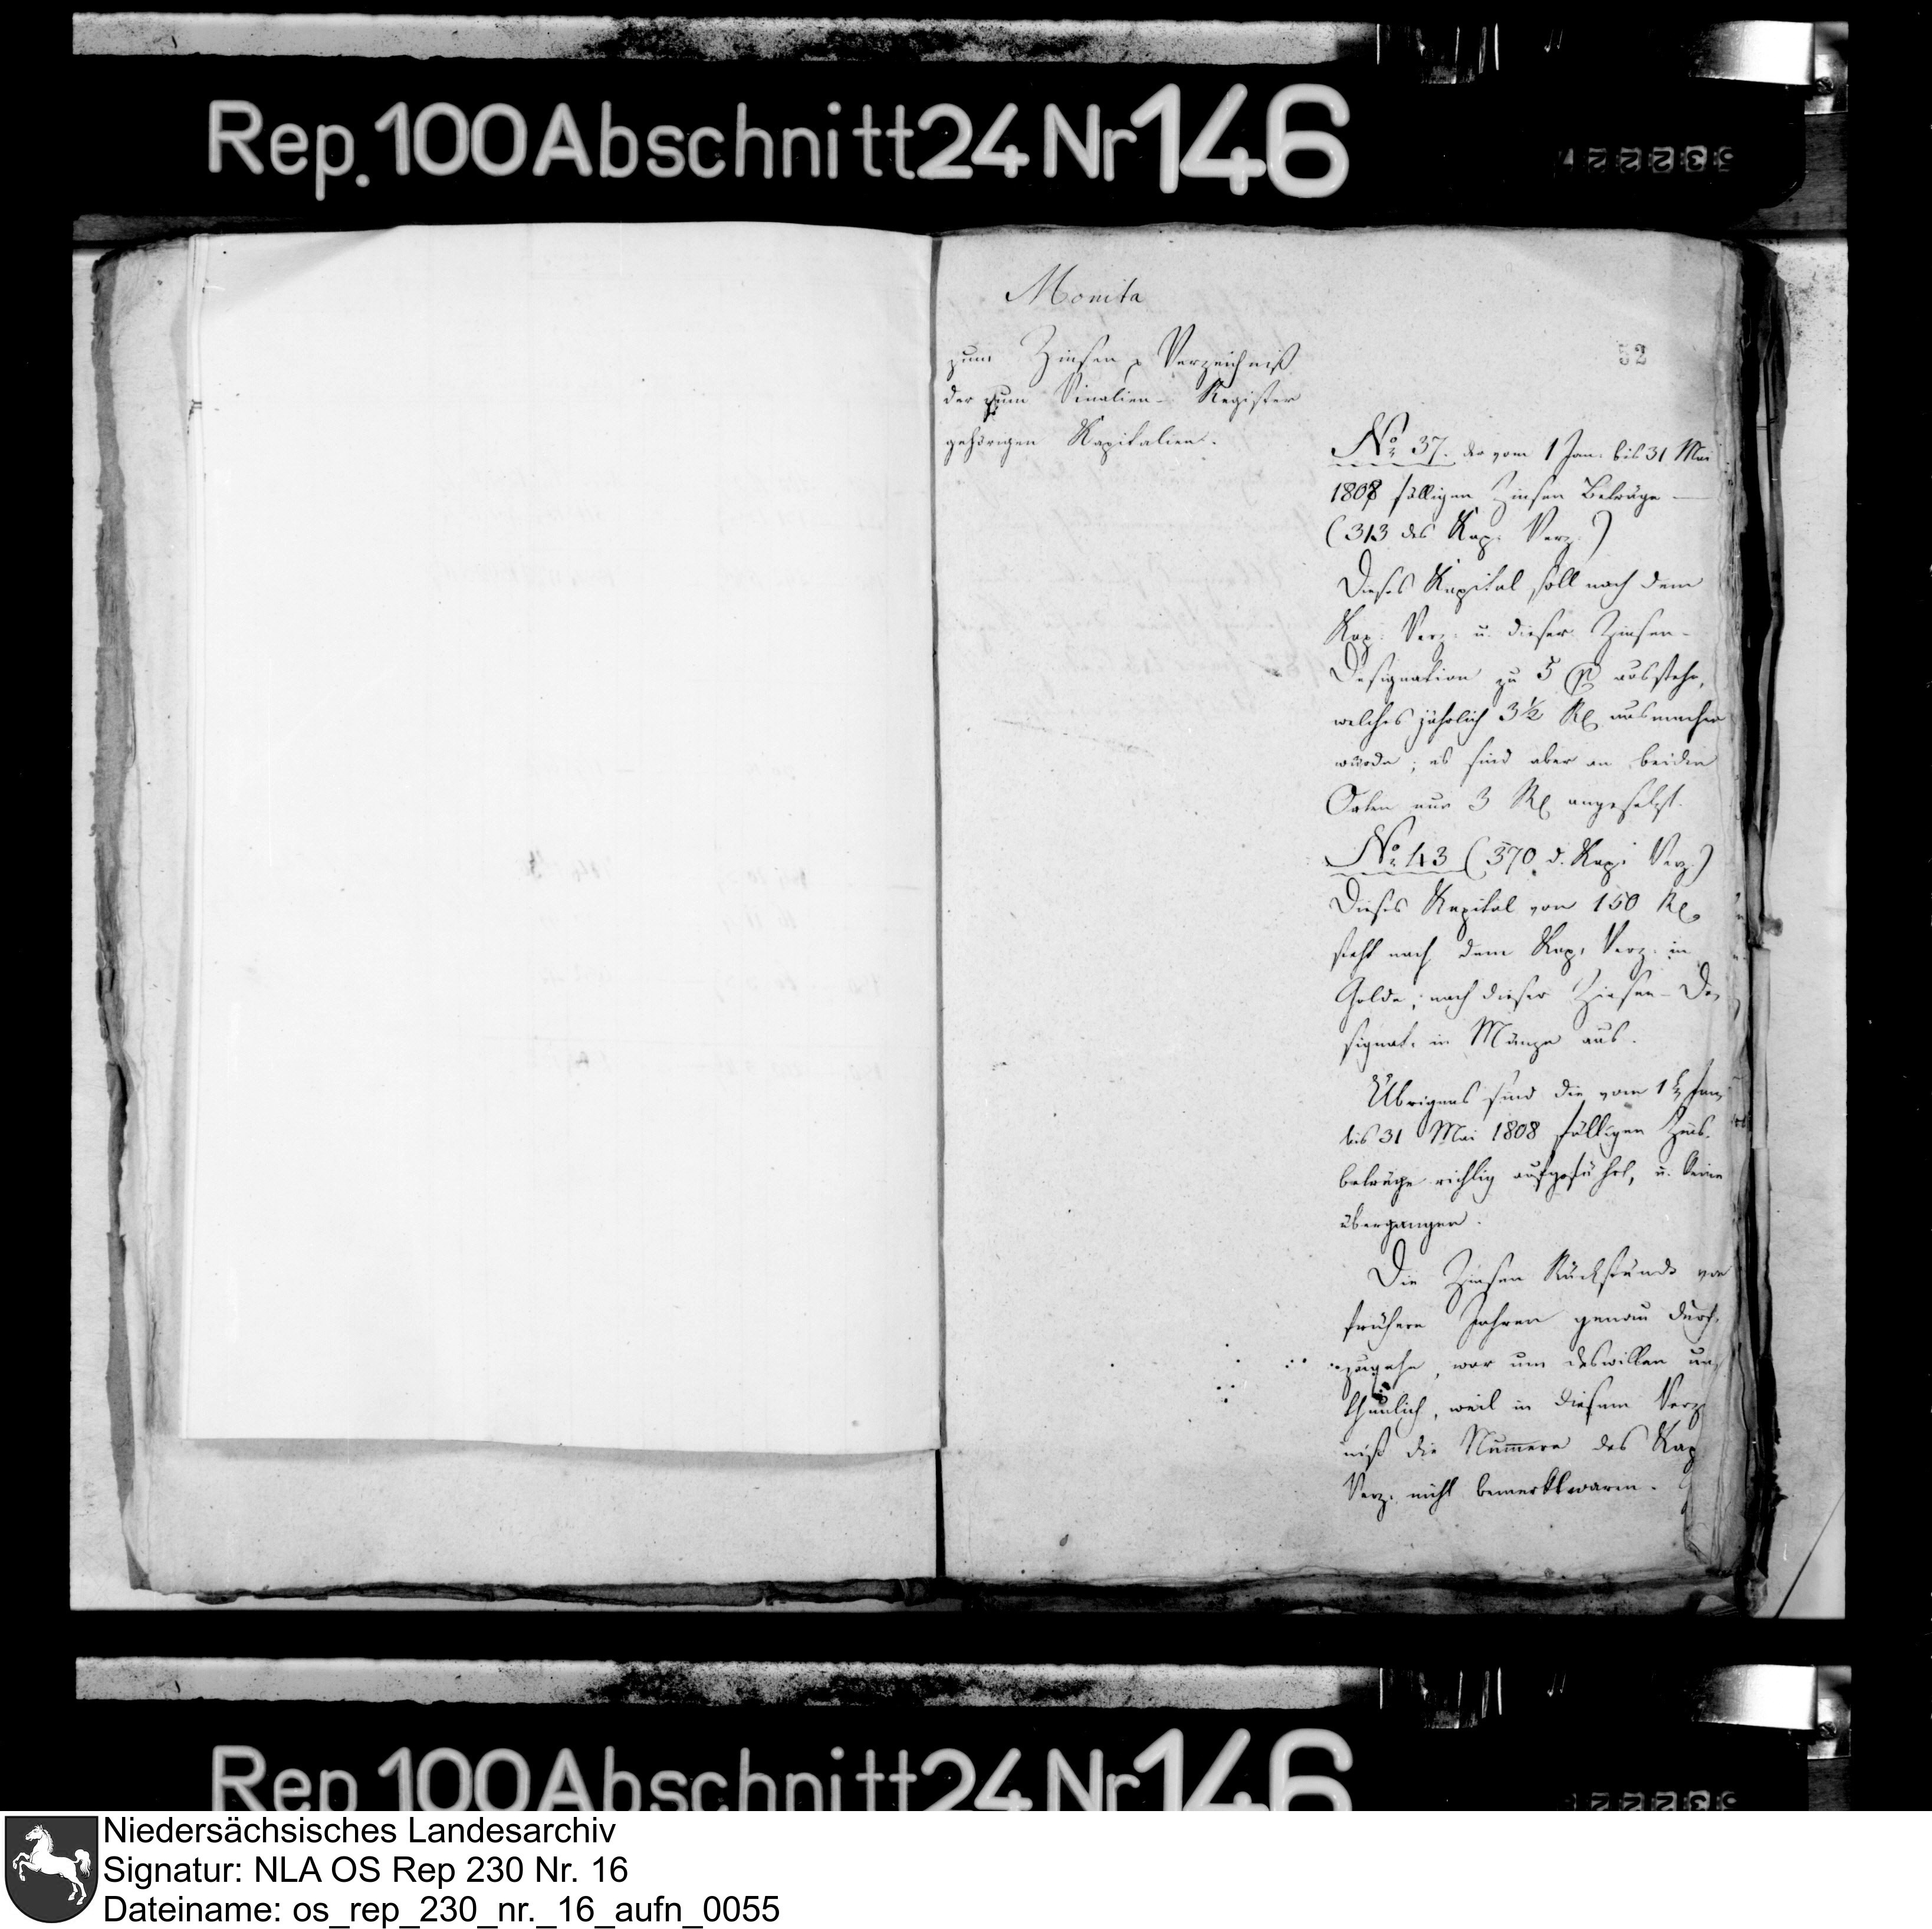 Rep. 100 Abschnitt 24 Nr 146
Monita
zum Zinsen Verzeichniß
der zum Vicalien-Register
gehörigen Kapitalien.
52
No. 37. der vom 1 Jan. bis 31 Mai
1808 fälligen Zinsen Beträge —
(313 des Kap. Verz.)
Dieses Kapital soll nach dem
Kap. Verz. u. dieser Zinsen-
Designation zu 5 ausstehe,
welches jährlich 3½ Rl ausmachen
wurde; es sind aber an beiden
Orten nur 3 Rl angesetzt.
No. 43 (370 d. Kap. Verz.)
Dieses Kapital von 150 Rl
steht nach dem Kap. Verz. in
Golde, nach dieser Zinsen-De-
signat. in Münze aus.
Übrigens sind die vom 1 Jan.
bis 31 Mai 1808 fälligen Zins-
beträge richtig aufgeführt, u. keine
übergangen.
Die Zinsen Rückstände von
frühern Jahren genau durch-
zugehe, war um deswillen un-
thunlich, weil in diesem Verz
niß die Numern des Kap
Verz. nicht bemerkt waren.
Rep 100 Abschnitt 24 Nr 146
Niedersächsisches Landesarchiv
Signatur: NLA OS Rep 230 Nr. 16
Dateiname: os_rep_230_nr._16_aufn_0055